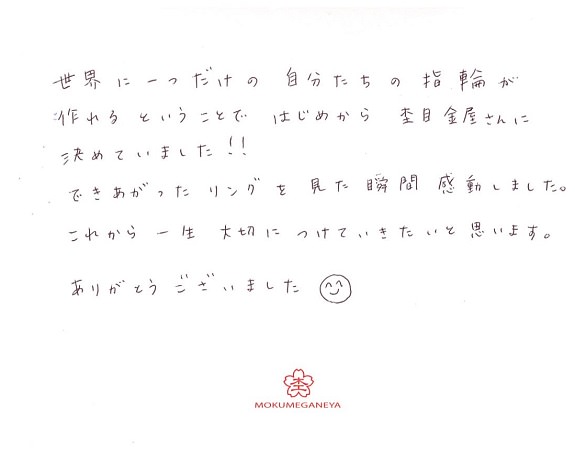 世界に一つだけの 自分たちの指輪が
作れるということで はじめから 杢目金屋さんに
決めていました!!
できあがったリングを見た瞬間感動しました。
これから一生大切につけていきたいと思います。
ありがとうございました
杢
MOKUMEGANEYA